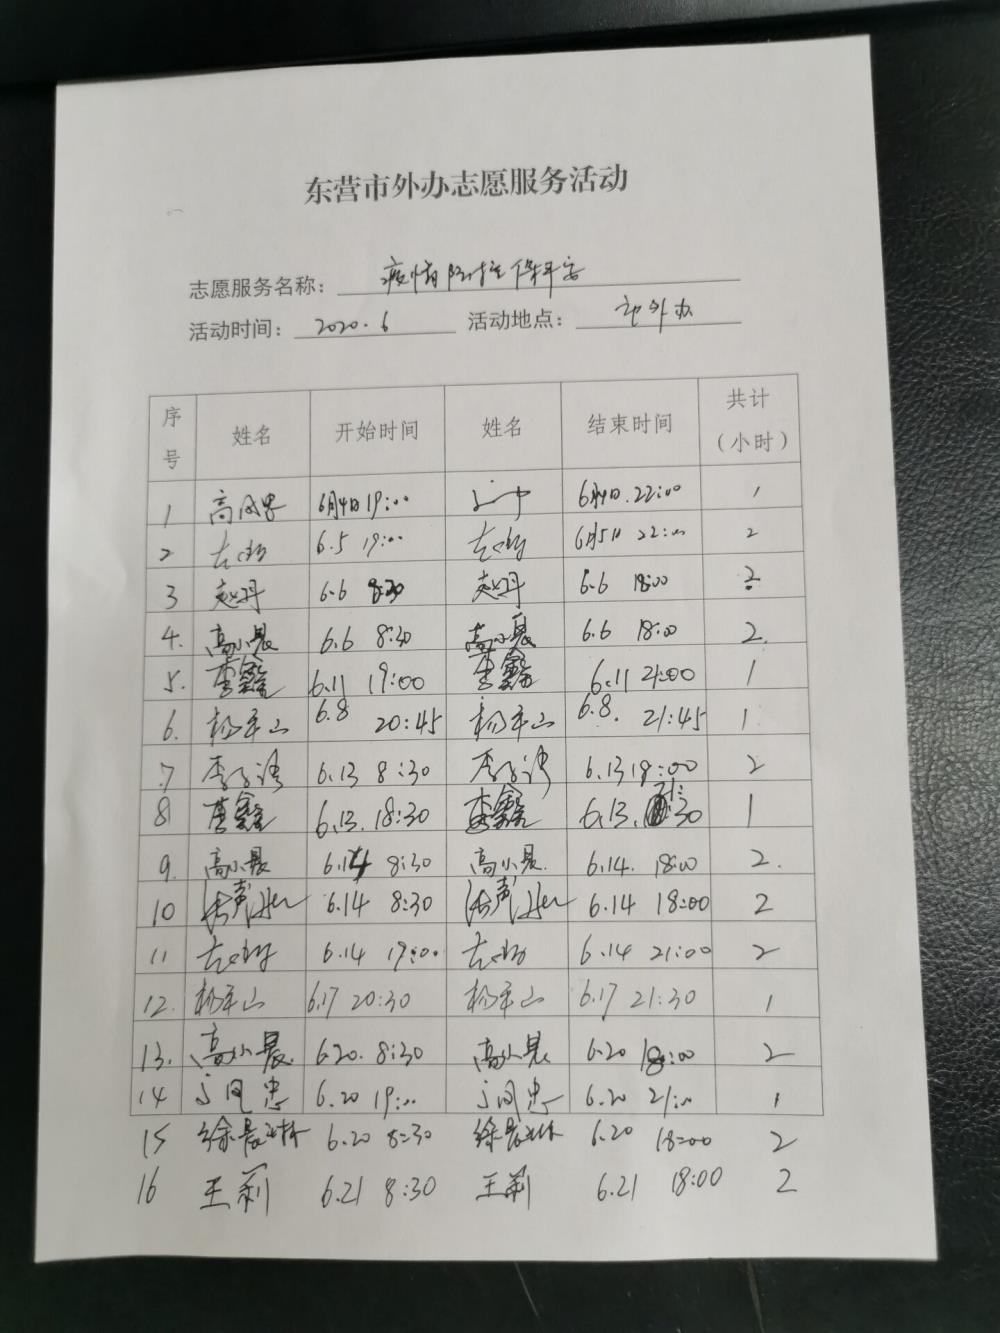 东营市外办志愿服务活动
志愿服务名称： 疫情防控保平安
活动时间： 2020.6 活动地点： 市外办
序号 姓名 开始时间 姓名 结束时间 共计（小时）
1 6月4日 19:00 6月4日 22:00 1
2 6.5 19:00 6月5日 22:00 2
3 赵丹 6.6 8:30 赵丹 6.6 18:00 2
4. 高小晨 6.6 8:30 高小晨 6.6 18:00 2.
5. 李鑫 6.11 19:00 李鑫 6.11 21:00 1
6. 杨平山 6.8 20:45 杨平山 6.8. 21:45 1
7 6.13 8:30 6.13 18:00 2
8 李鑫 6.13. 18:30 李鑫 6.13. :30 1
9. 高小晨 6.14 8:30 高小晨. 6.14. 18:00 2.
10 6.14 8:30 6.14 18:00 2
11 6.14 19:00 6.14 21:00 2
12. 杨平山 6.17 20:30 杨平山 6.17 21:30 1
13. 高小晨. 6.20. 8:30 高小晨 6.20 18:00 2
14 6.20 19:00 6.20 21:00 1
15 徐晨林 6.20 8:30 徐晨林 6.20 18:00 2
16 王莉 6.21 8:30 王莉 6.21 18:00 2